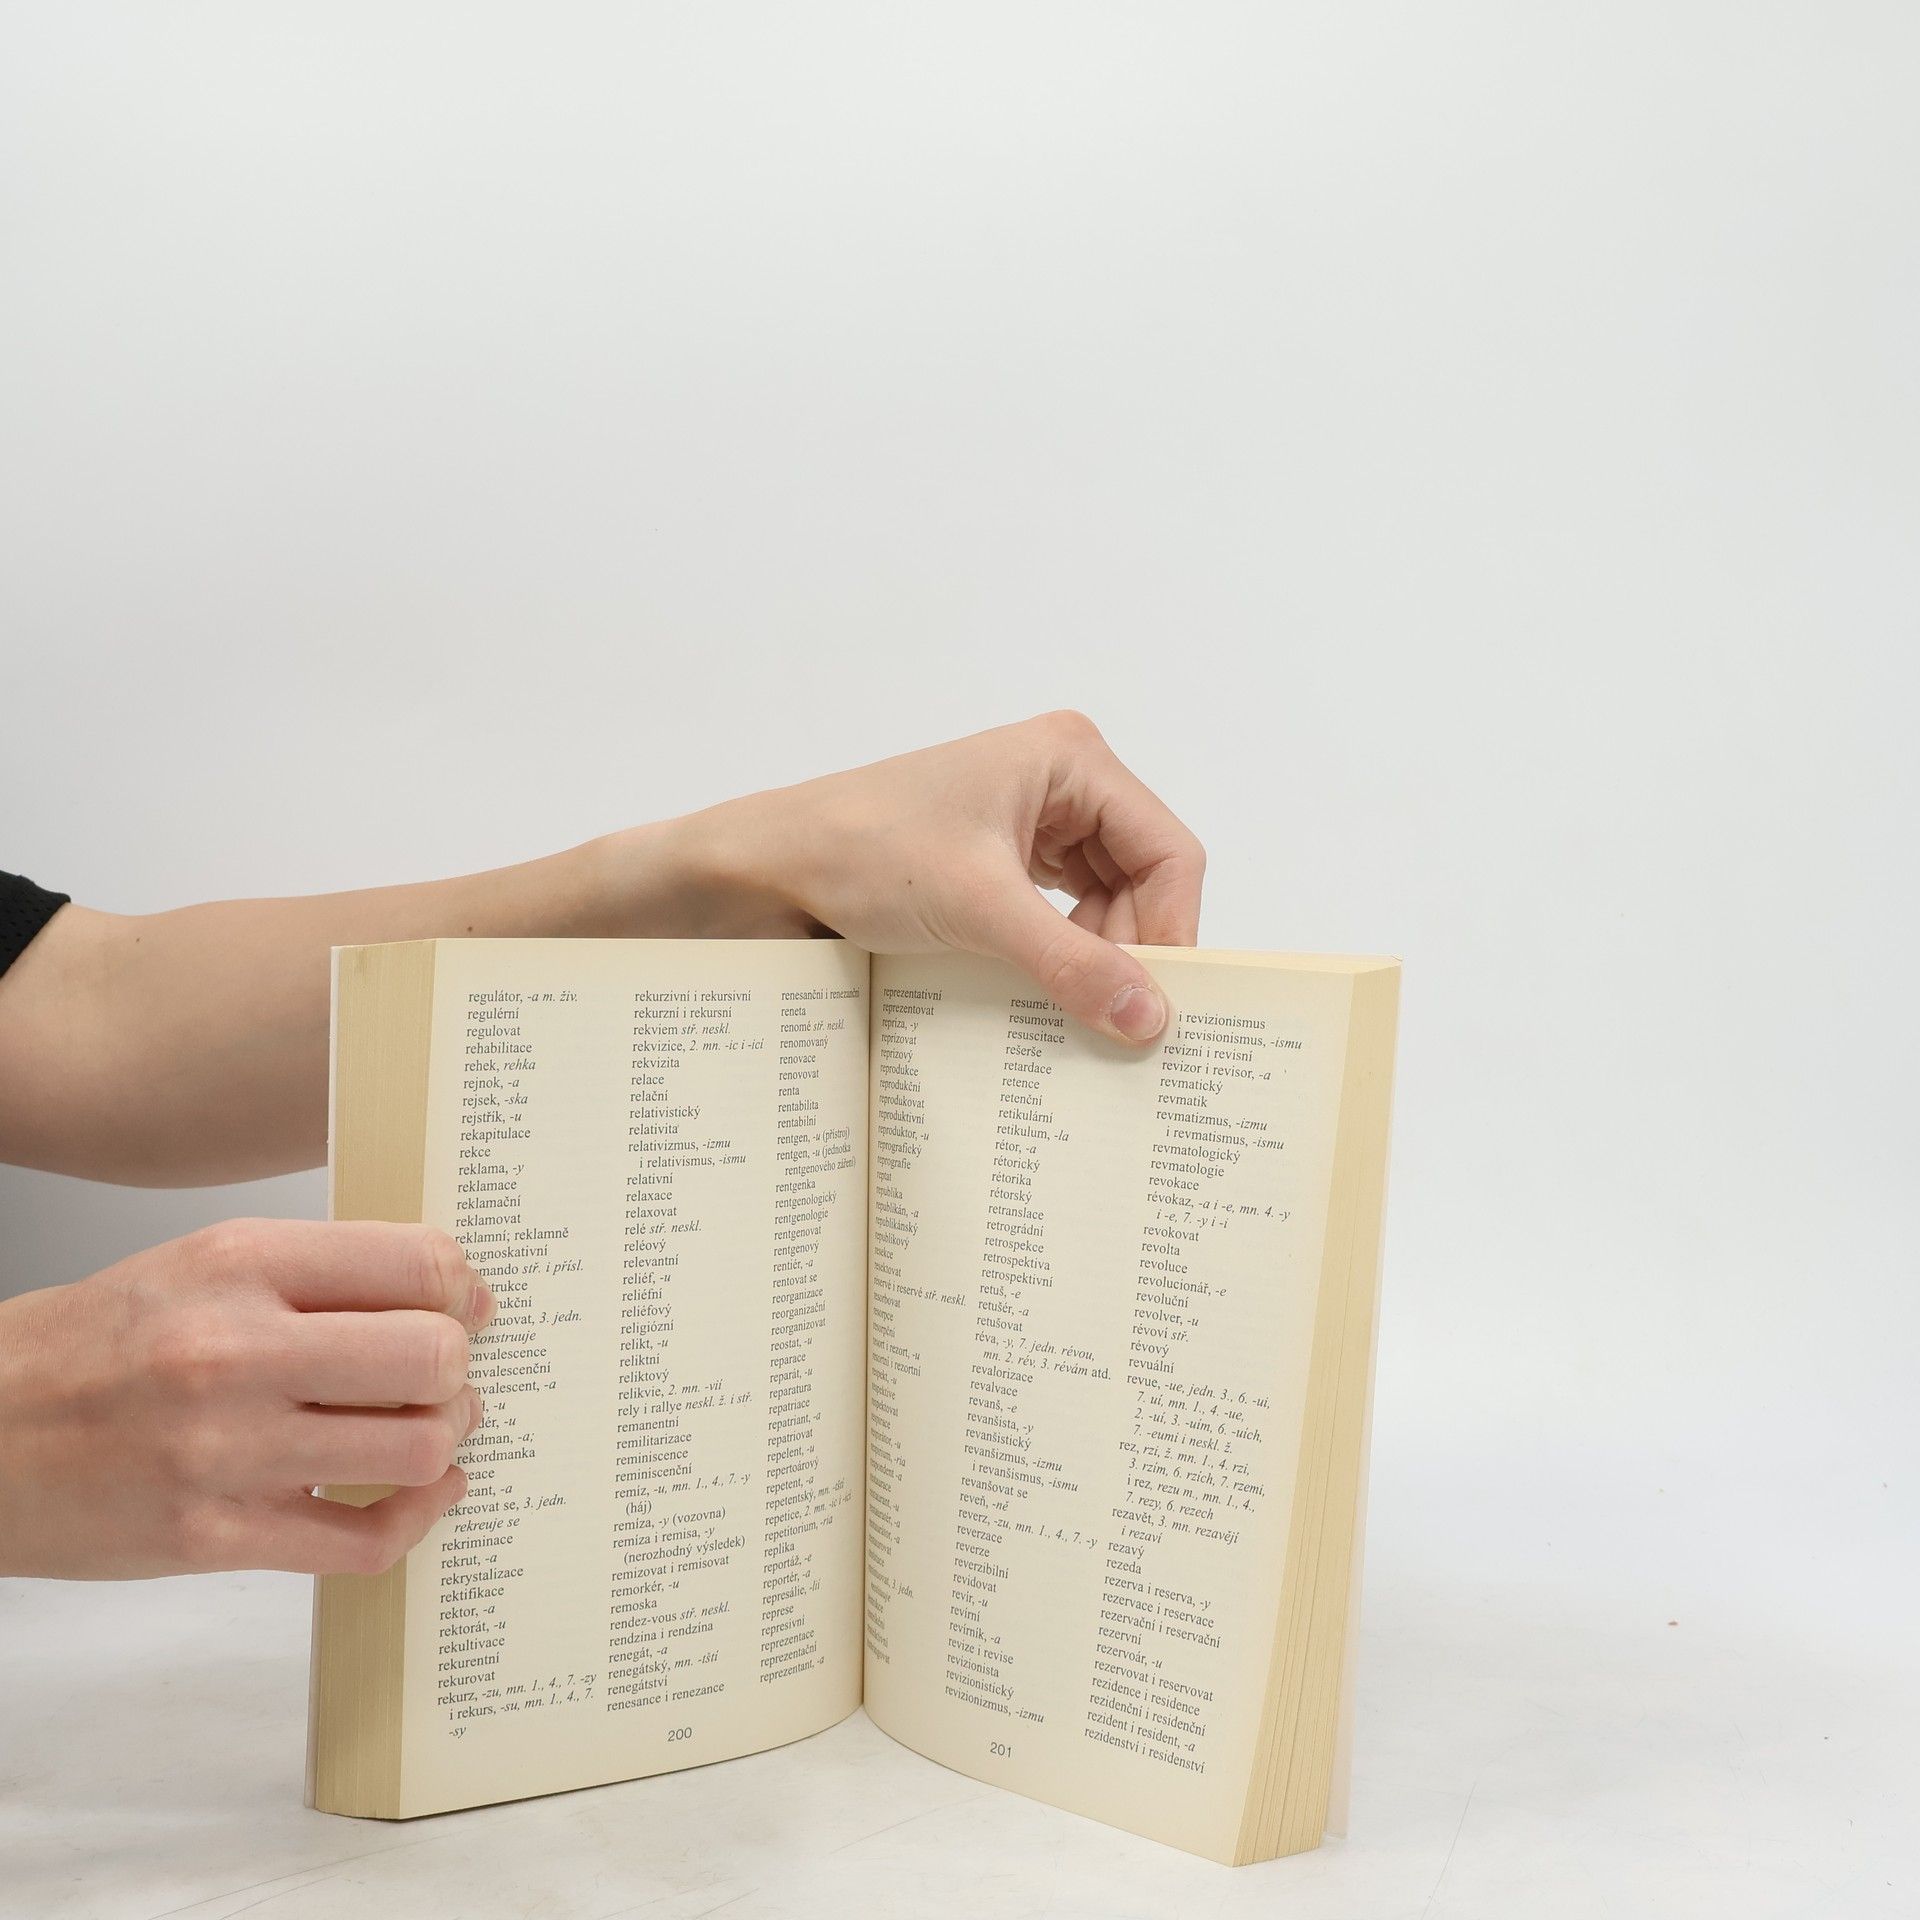 regulátor, -a m. živ.
regulérní
regulovat
rehabilitace
rehek, rehka
rejnok, -a
rejsek, -ska
rejstřík, -u
rekapitulace
rekce
reklama, -y
reklamace
reklamační
reklamovat
reklamní; reklamně
kognoskativní
omando stř. i přísl.
strukce
rukční
truovat, 3. jedn.
ekonstruuje
onvalescence
onvalescenční
nvalescent, -a
d, -u
dér, -u
kordman, -a;
rekordmanka
reace
eant, -a
ekreovat se, 3. jedn.
rekreuje se
rekriminace
rekrut, -a
rekrystalizace
rektifikace
rektor, -a
rektorát, -u
rekultivace
rekurentní
rekurovat
rekurz, -zu, mn. 1., 4., 7. -zy
i rekurs, -su, mn. 1., 4., 7.
-sy
rekurzívní i rekursivní
rekurzní i rekursní
rekviem stř. neskl.
rekvizice, 2. mn. -ic i -icí
rekvizita
relace
relační
relativistický
relativita
relativizmus, -izmu
i relativismus, -ismu
relativní
relaxace
relaxovat
relé stř. neskl.
reléový
relevantní
reliéf, -u
reliéfní
reliéfový
religiózní
relikt, -u
reliktní
reliktový
relikvie, 2. mn. -vií
rely i rallye neskl. ž. i stř.
remanentní
remilitarizace
reminiscence
reminiscenční
remíz, -u, mn. 1., 4., 7. -y
(háj)
remíza, -y (vozovna)
remíza i remisa, -y
(nerozhodný výsledek)
remizovat i remisovat
remorkér, -u
remoska
rendez-vous stř. neskl.
rendzina i rendzína
renegát, -a
renegátský, mn. -tští
renegátství
renesance i renezance
renesanční i renezanční
reneta
renomé stř. neskl.
renomovaný
renovace
renovovat
renta
rentabilita
rentabilní
rentgen, -u (přístroj)
rentgen, -u (jednotka
rentgenového záření)
rentgenka
rentgenologický
rentgenologie
rentgenovat
rentgenový
rentiér, -a
rentovat se
reorganizace
reorganizační
reorganizovat
reostat, -u
reparace
reparát, -u
reparatura
repatriace
repatriant, -a
repatriovat
repelent, -u
repertoárový
repetent, -a
repetentský, mn. -tští
repetice, 2. mn. -ic i -icí
repetitorium, -ria
replika
reportáž, -e
reportér, -a
represálie, -lií
represe
represivní
reprezentace
reprezentační
reprezentant, -a
200
reprezentativní
reprezentovat
repríza, -y
reprízovat
reprízový
reprodukce
reprodukční
reprodukovat
reproduktivní
reproduktor, -u
reprografický
reprografie
reptat
republika
republikán, -a
republikánský
republikový
resekce
resekovat
reservé i reservé stř. neskl.
resorbovat
resorpce
resorpční
resort i rezort, -u
resortní i rezortní
respekt, -u
respektive
respektovat
respirace
respirátor, -u
respirium, -ria
respondent -a
restaurace
restaurant, -u
resumé i r
resumovat
resuscitace
rešerše
retardace
retence
retenční
retikulární
retikulum, -la
rétor, -a
rétorický
rétorika
rétorský
retranslace
retrográdní
retrospekce
retrospektiva
retrospektivní
retuš, -e
retušér, -a
retušovat
réva, -y, 7. jedn. révou,
mn. 2. rév, 3. révám atd.
revalorizace
revalvace
revanš, -e
revanšista, -y
revanšistický
revanšizmus, -izmu
i revanšismus, -ismu
revanšovat se
reveň, -ně
reverz, -zu, mn. 1., 4., 7. -y
reverzace
reverze
reverzibilní
revidovat
revír, -u
revírní
revírník, -a
revize i revise
revizionista
revizionistický
revizionizmus, -izmu
i revizionismus
i revisionismus, -ismu
revizní i revisní
revizor i revisor, -a
revmatický
revmatik
revmatizmus, -izmu
i revmatismus, -ismu
revmatologický
revmatologie
revokace
révokaz, -a i -e, mn. 4. -y
i -e, 7. -y i -i
revokovat
revolta
revoluce
revolucionář, -e
revoluční
revolver, -u
révoví stř.
révový
revuální
revue, -ue, jedn. 3., 6. -ui,
7. uí, mn. 1., 4. -ue,
2. -uí, 3. -uím, 6. -uích,
7. -eumi i neskl. ž.
rez, rzi, ž. mn. 1., 4. rzi,
3. rzím, 6. rzích, 7. rzemi,
i rez, rezu m., mn. 1., 4.,
7. rezy, 6. rezech
rezavět, 3. mn. rezavějí
i rezaví
rezavý
rezeda
rezerva i reserva, -y
rezervace i reservace
rezervační i reservační
rezervní
rezervoár, -u
rezervovat i reservovat
rezidence i residence
rezidenční i residenční
rezident i resident, -a
rezidenství i residenství
201